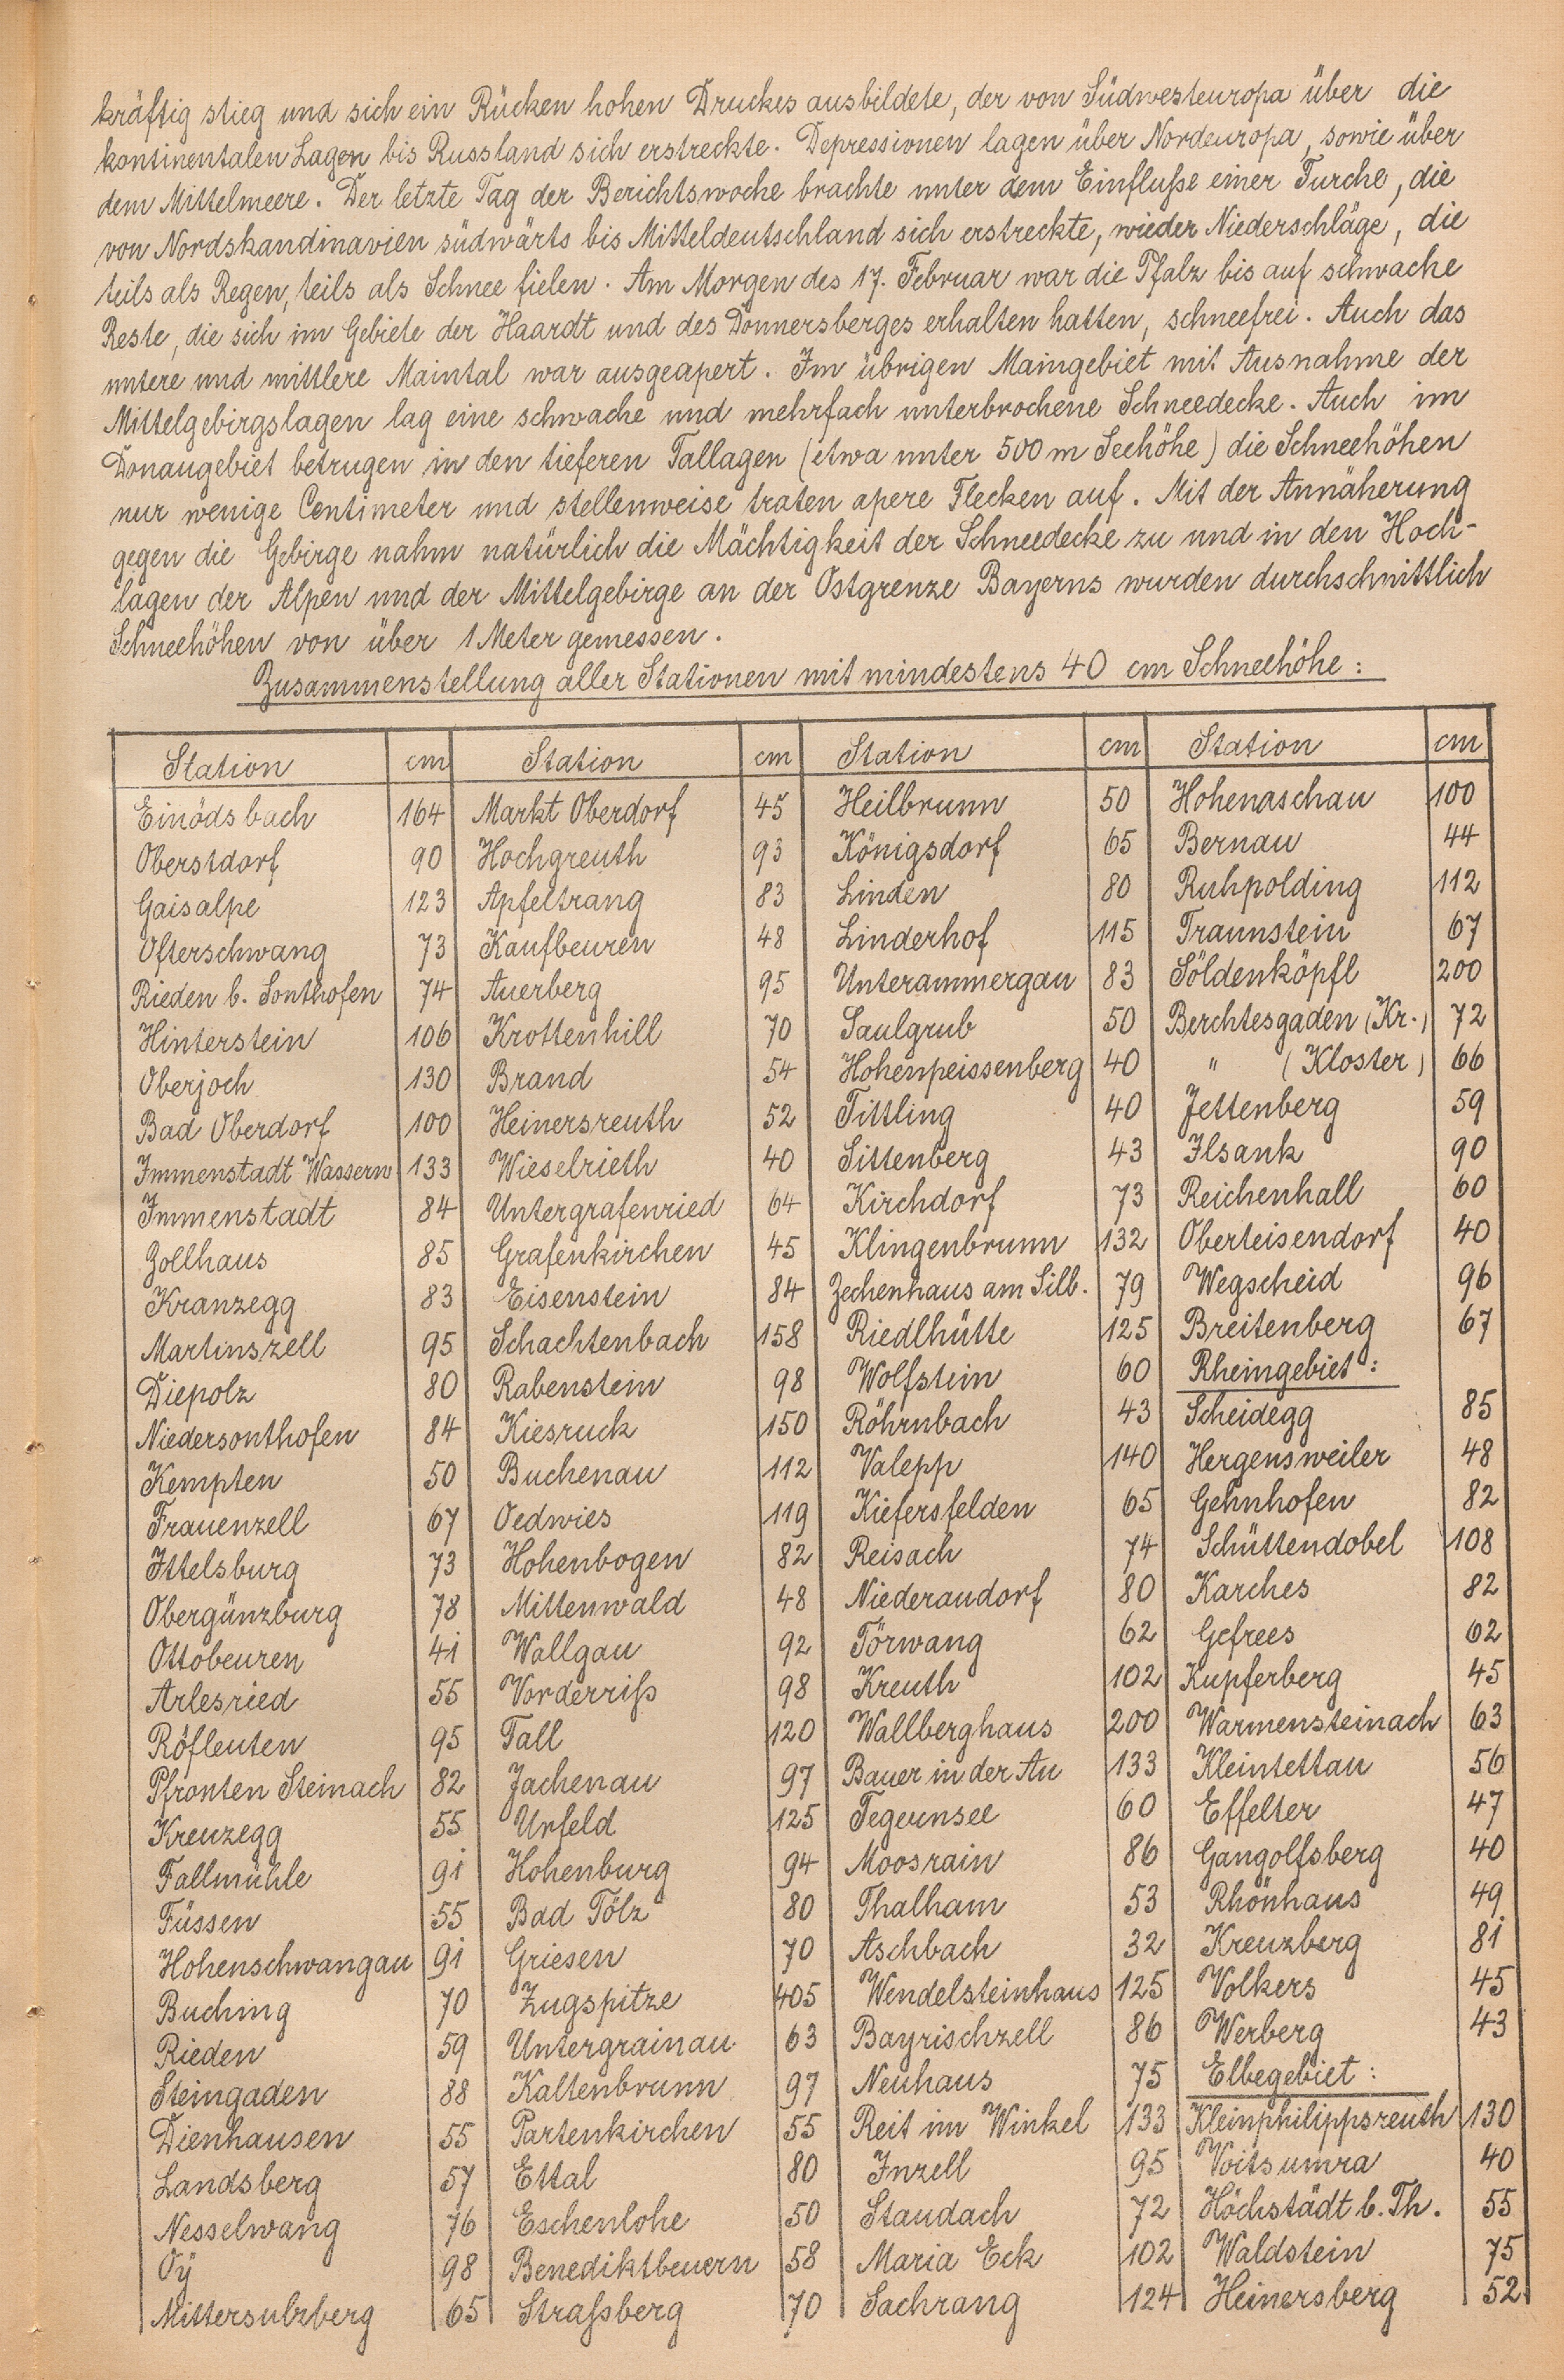 kräftig stieg und sich ein Rücken hohen Druckes ausbildete, der von Südwesteuropa über die
kontinentalen Lagen bis Russland sich erstreckte. Depressionen lagen über Nordeuropa, sowie über
dem Mittelmeere. Der letzte Tag der Berichtswoche brachte unter dem Einfluße einer Furche, die
von Nordskandinavien südwärts bis Mitteldeutschland sich erstreckte, wieder Niederschläge, die
teils als Regen, teils als Schnee fielen. Am Morgen des 17. Februar war die Pfalz bis auf schwache
Reste, die sich im Gebiete der Haardt und des Donnersberges erhalten hatten, schneefrei. Auch das
untere und mittlere Maintal war ausgeapert. Im übrigen Maingebiet mit Ausnahme der
Mittelgebirgslagen lag eine schwache und mehrfach unterbrochene Schneedecke. Auch im
Donaugebiet betrugen in den tieferen Tallagen (etwa unter 500 m Seehöhe) die Schneehöhen
nur wenige Centimeter und stellenweise traten apere Flecken auf. Mit der Annäherung
gegen die Gebirge nahm natürlich die Mächtigkeit der Schneedecke zu und in den Hoch-
lagen der Alpen und der Mittelgebirge an der Ostgrenze Bayerns wurden durchschnittlich
Schneehöhen von über 1 Meter gemessen.
Zusammenstellung aller Stationen mit mindestens 40 cm Schneehöhe:
Station cm Station cm Station cm Station cm
Einödsbach 164 Markt Oberdorf 45 Heilbrunn 50 Hohenaschau 100
Oberstdorf 90 Hochgreuth 93 Königsdorf 65 Bernau 44
Gaisalpe 123 Apfeltrang 83 Linden 80 Ruhpolding 112
Ofterschwang 73 Kaufbeuren 48 Linderhof 115 Traunstein 67
Rieden b. Sonthofen 74 Auerberg 95 Unterammergau 83 Söldenköpfl 200
Hinterstein 106 Krottenhill 70 Saulgrub 50 Berchtesgaden (Kr.) 72
Oberjoch 130 Brand 54 Hohenpeissenberg 40 " (Kloster) 66
Bad Oberdorf 100 Heinersreuth 52 Tittling 40 Jettenberg 59
Immenstadt Wasserw 133 Wieselrieth 40 Sittenberg 43 Ilsank 90
Immenstadt 84 Untergrafenried 64 Kirchdorf 73 Reichenhall 60
Zollhaus 85 Grafenkirchen 45 Klingenbrunn 132 Oberteisendorf 40
Kranzegg 83 Eisenstein 84 Zechenhaus am Silb. 79 Wegscheid 96
Martinszell 95 Schachtenbach 158 Riedlhütte 125 Breitenberg 67
Diepolz 80 Rabenstein 98 Wolfstein 60 Rheingebiet:
Niedersonthofen 84 Kiesruck 150 Röhrnbach 43 Scheidegg 85
Kempten 50 Buchenau 112 Valepp 140 Hergensweiler 48
Frauenzell 67 Oedwies 119 Kiefersfelden 65 Gehnhofen 82
Ittelsburg 73 Hohenbogen 82 Reisach 74 Schüttendobel 108
Obergünzburg 78 Mittenwald 48 Niederaudorf 80 Karches 82
Ottobeuren 41 Wallgau 92 Törwang 62 Gefrees 62
Arlesried 55 Vorderriß 98 Kreuth 102 Kupferberg 45
Röfleuten 95 Fall 120 Wallberghaus 200 Warmensteinach 63
Pfronten Steinach 82 Jachenau 97 Bauer in der Au 133 Kleintettau 56
Kreuzegg 55 Urfeld 125 Tegernsee 60 Effelter 47
Fallmühle 91 Hohenburg 94 Moosrain 86 Gangolfsberg 40
Füssen 55 Bad Tölz 80 Thalham 53 Rhönhaus 49
Hohenschwangau 91 Griesen 70 Aschbach 32 Kreuzberg 81
Buching 70 Zugspitze 405 Wendelsteinhaus 125 Volkers 45
Rieden 59 Untergrainau 63 Bayrischzell 86 Werberg 43
Steingaden 88 Kaltenbrunn 97 Neuhaus 75 Elbegebiet:
Dienhausen 55 Partenkirchen 55 Reit im Winkel 133 Kleinphilippsreuth 130
Landsberg 57 Ettal 80 Inzell 95 Voitsumra 40
Nesselwang 76 Eschenlohe 50 Staudach 72 Höchstädt b. Th. 55
Oÿ 98 Benediktbeuern 58 Maria Eck 102 Waldstein 75
Mittersulzberg 65 Straßberg 70 Sachrang 124 Heinersberg 52